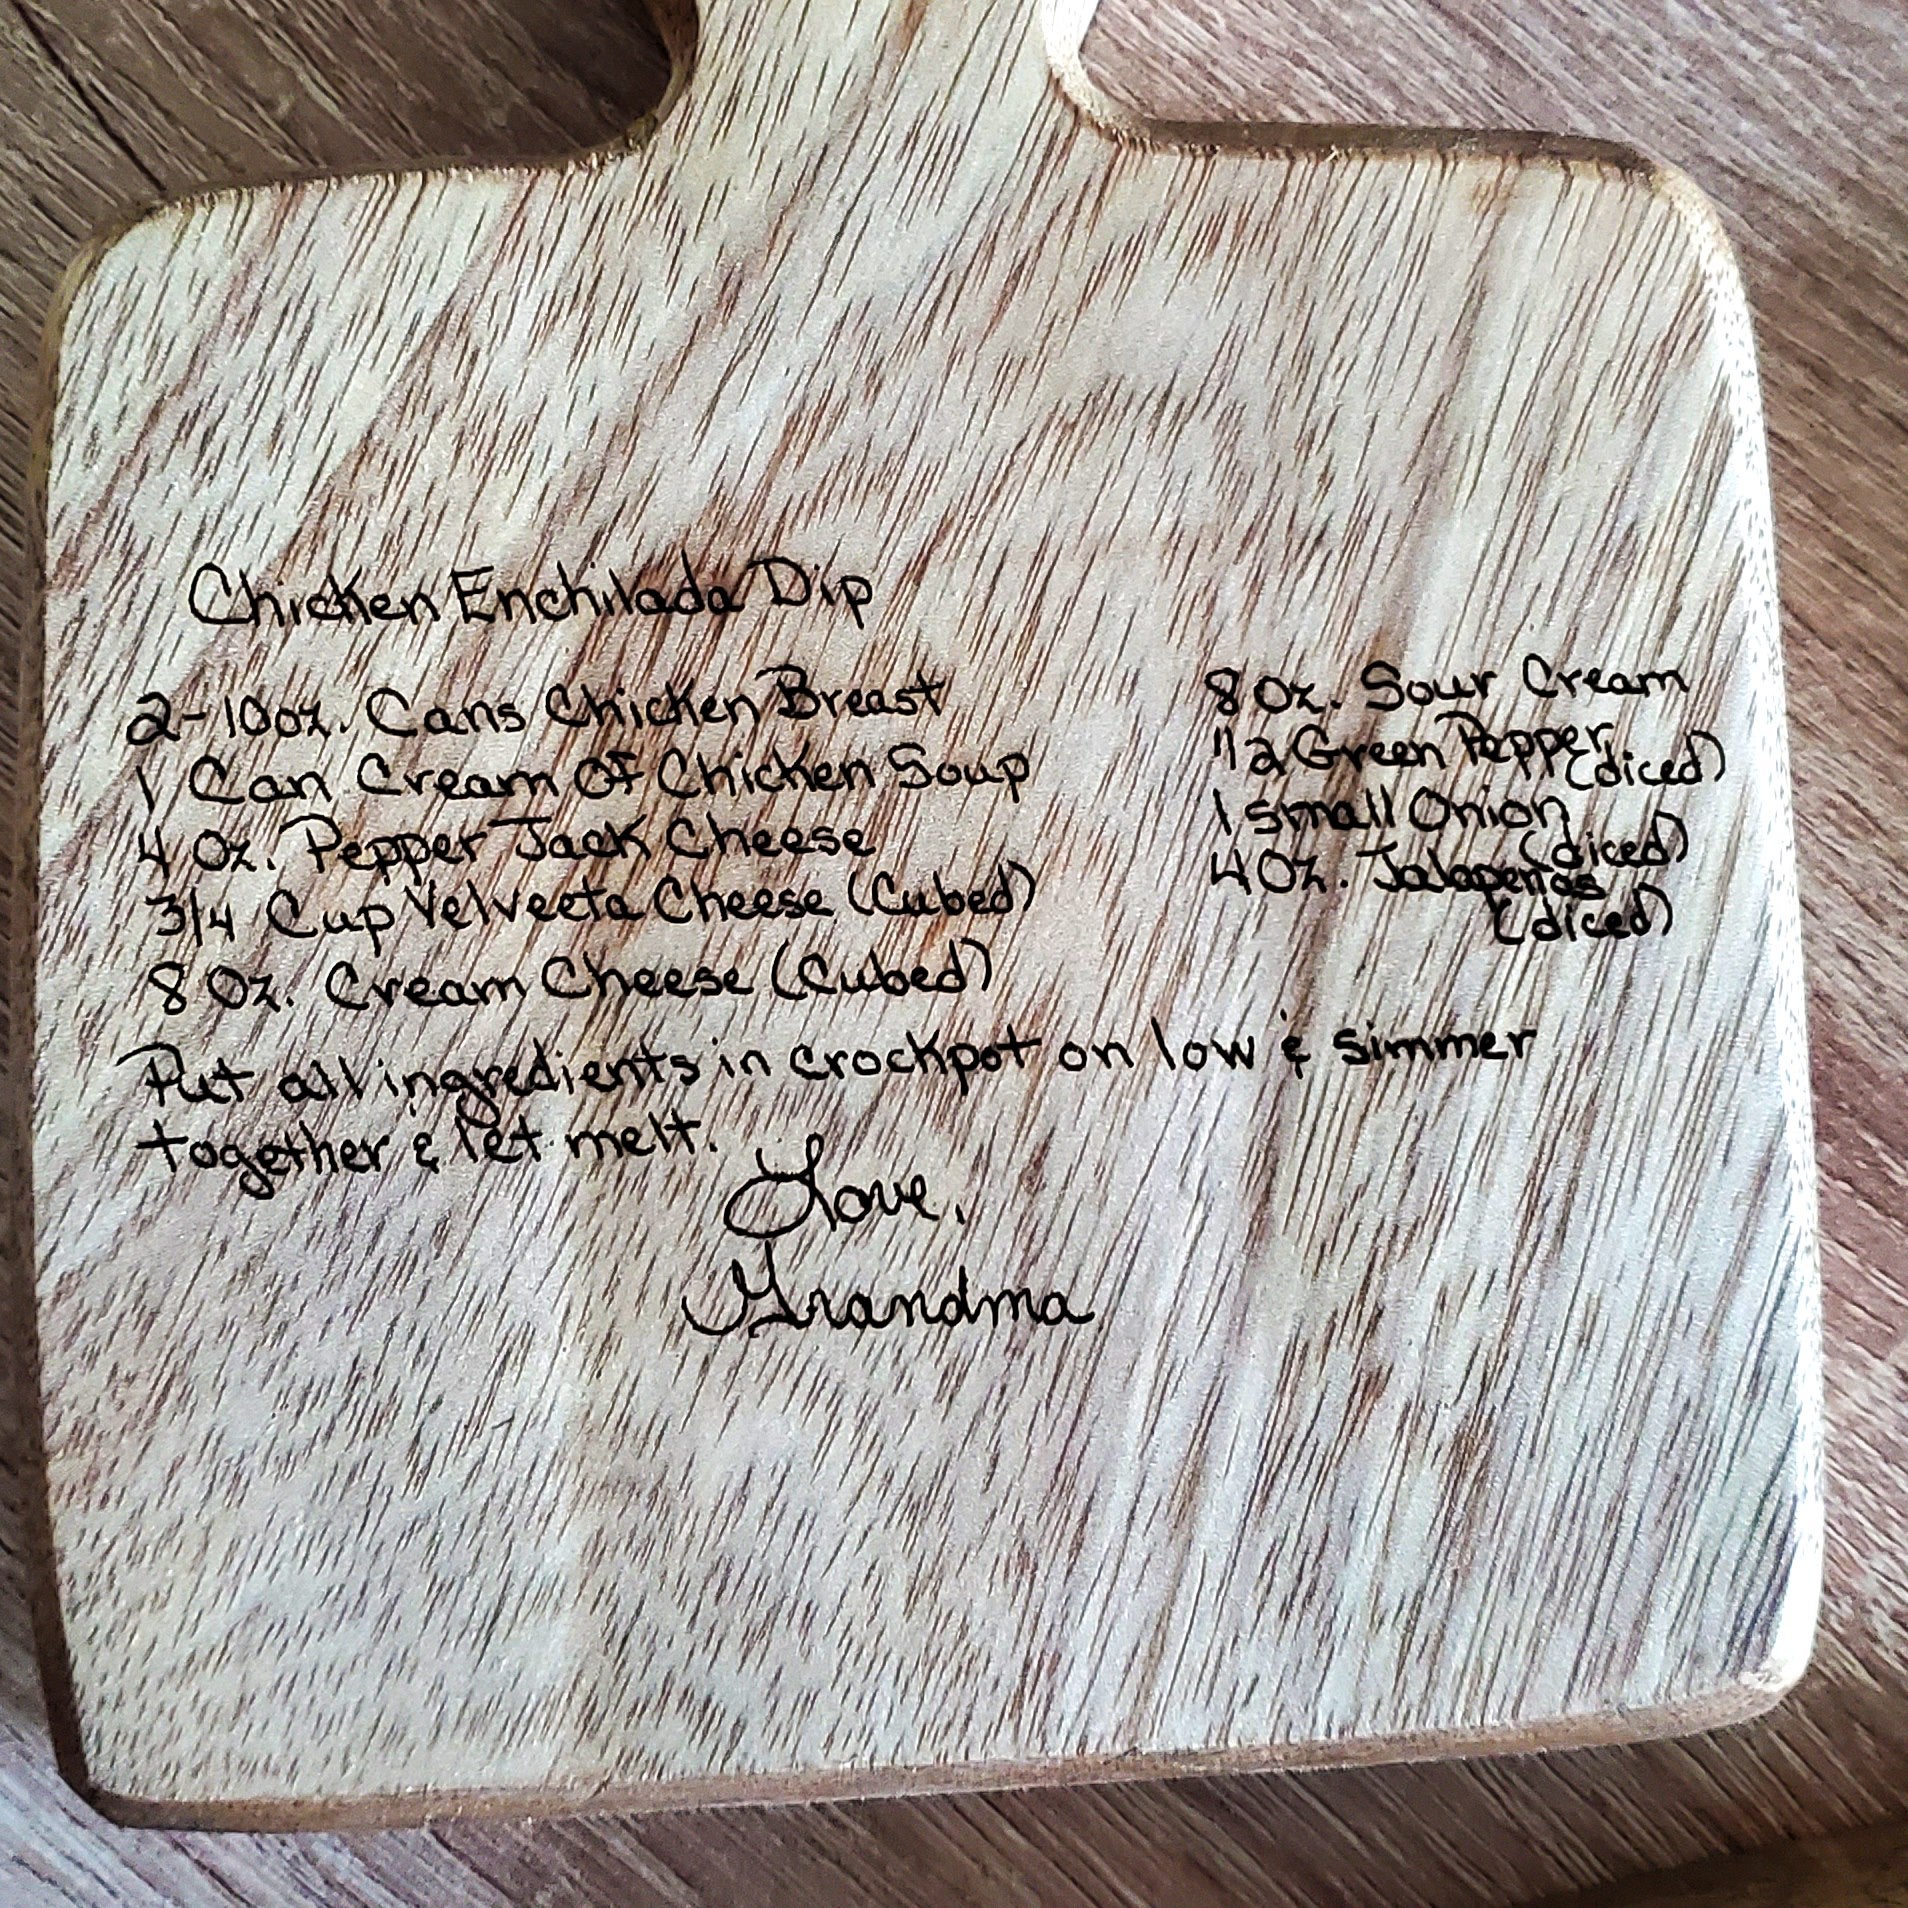 Chicken Enchilada Dip
2-10oz. Cans Chicken Breast
1 Can Cream Of Chicken Soup
4 Oz. Pepper Jack Cheese
3/4 Cup Velveeta Cheese (Cubed)
8 Oz. Cream Cheese (Cubed)
8 Oz. Sour Cream
1/2 Green Pepper
(diced)
1 small Onion
(diced)
4 Oz. Jalapeños
(diced)
Put all ingredients in crockpot on low & simmer
together & let melt.
Love,
Grandma